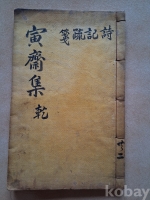 詩記疏箋
寅齋集 乾
kobay